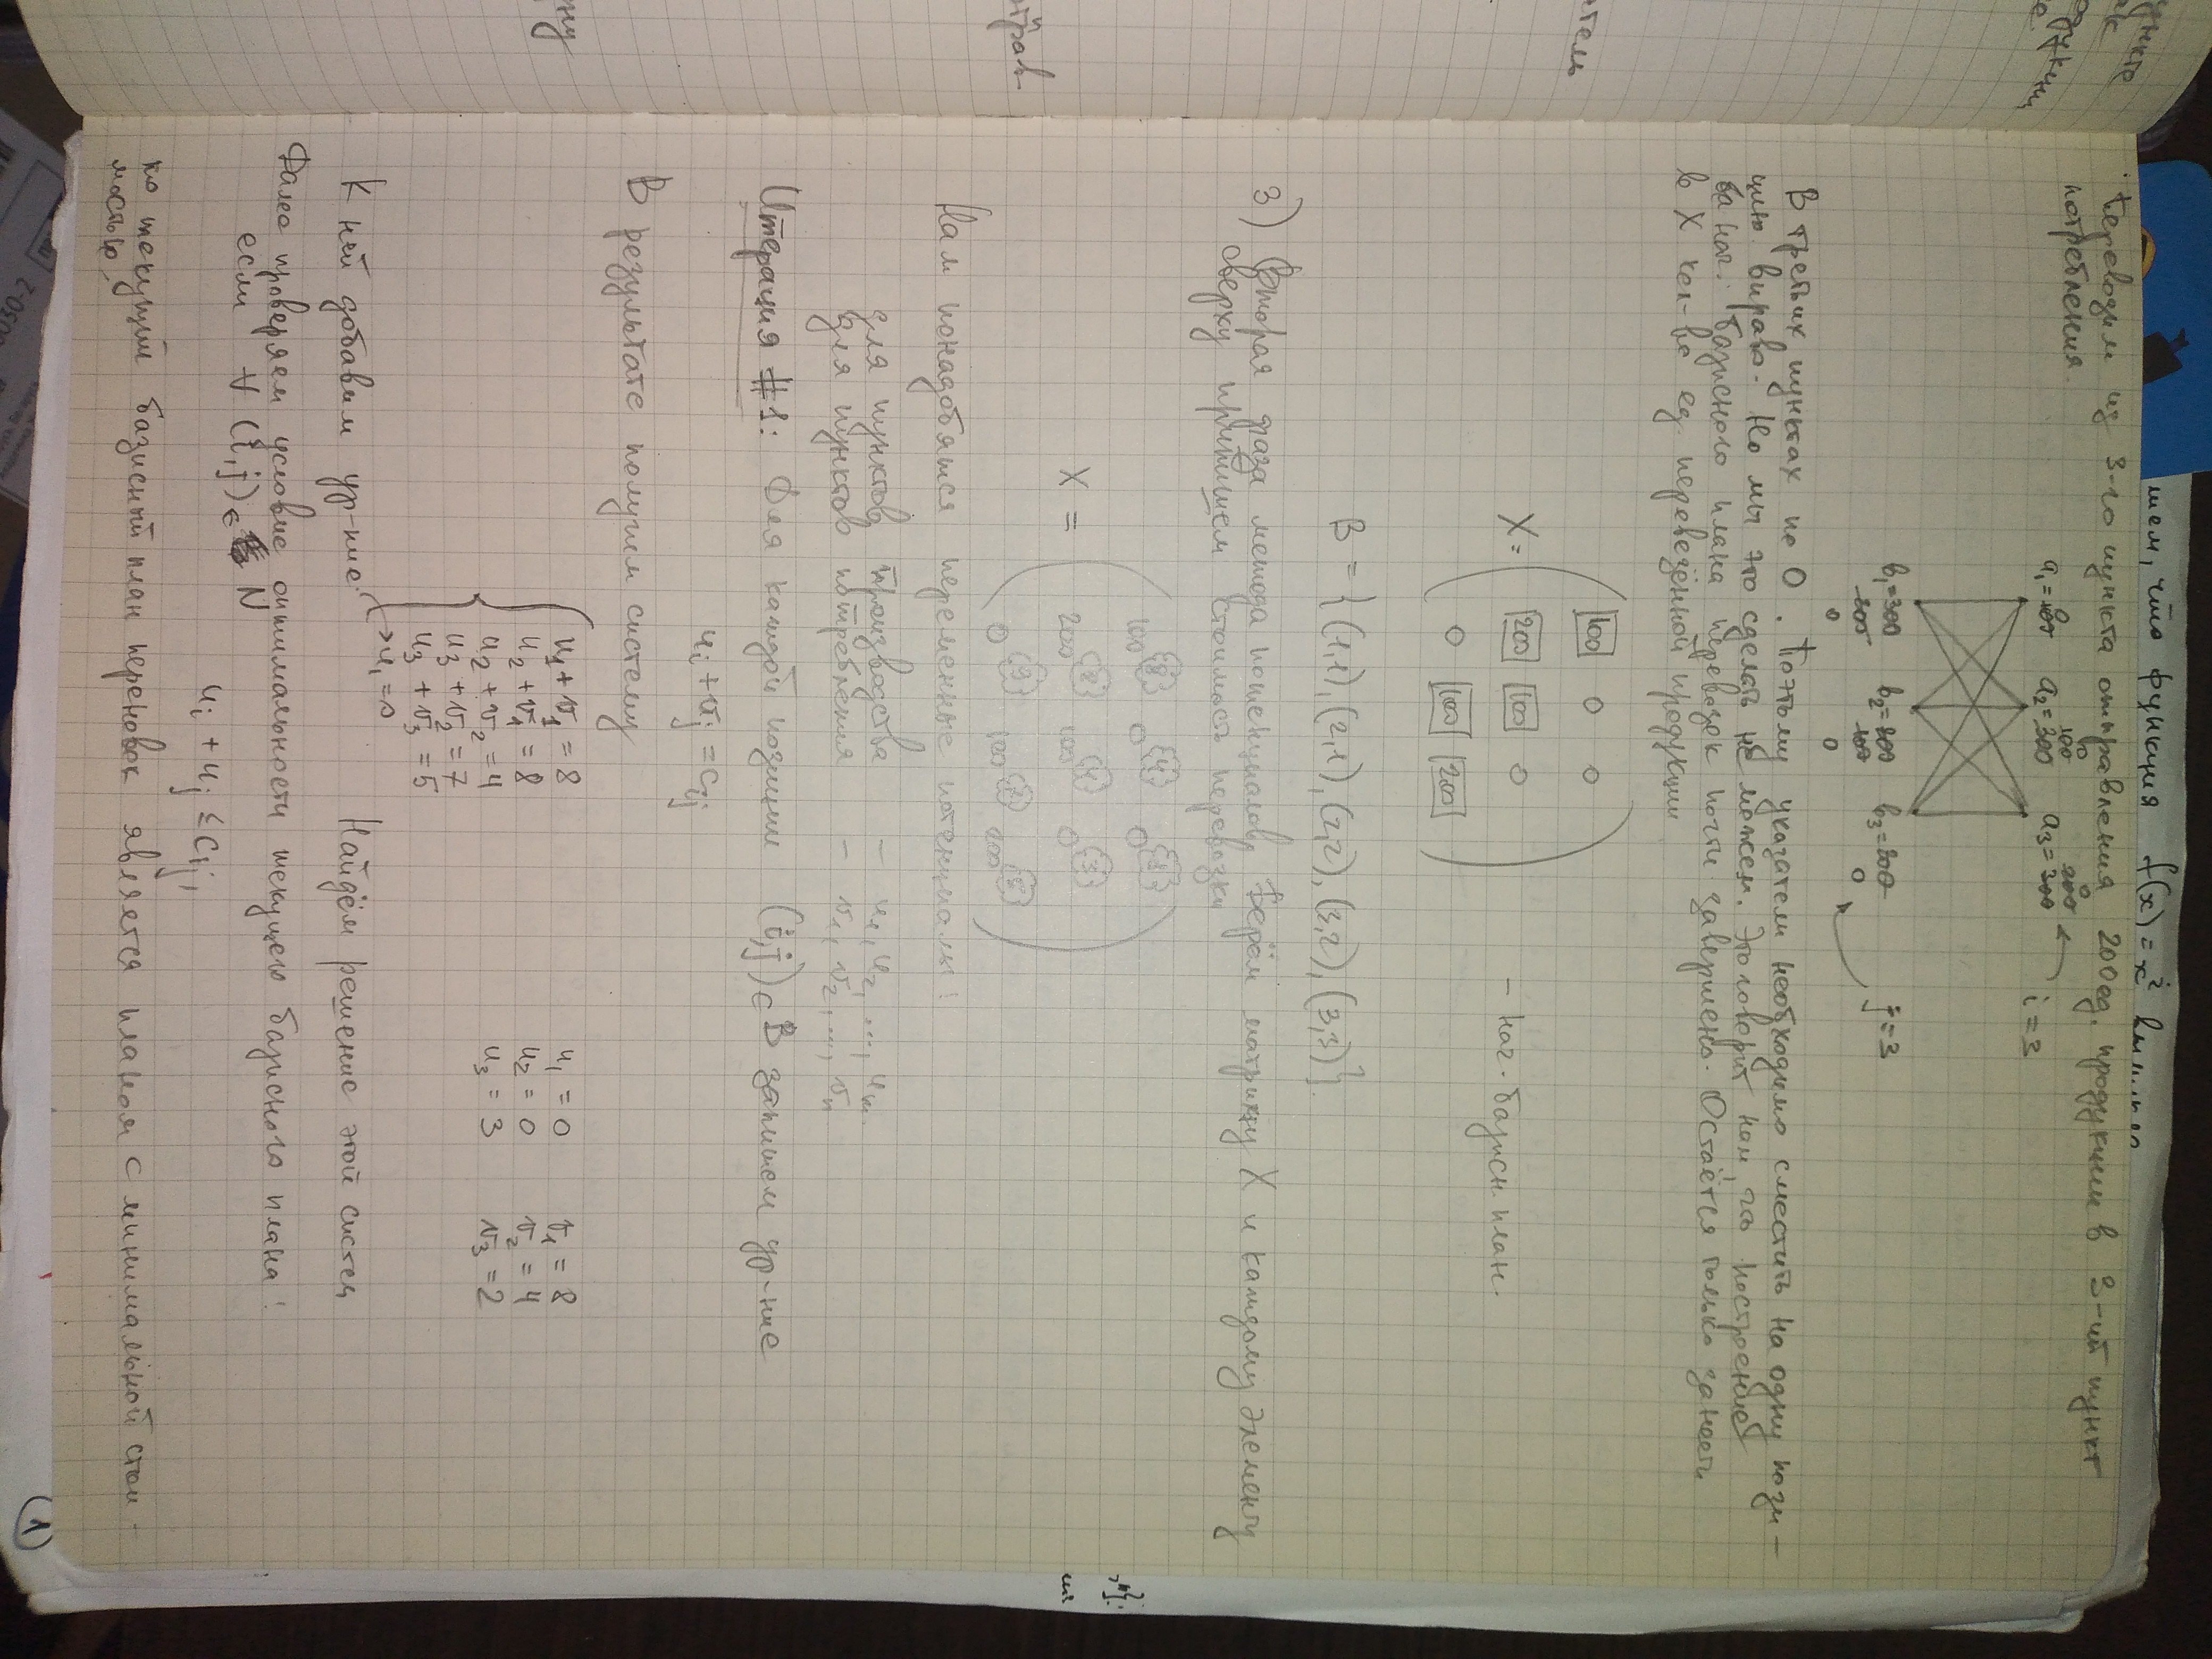 ункте
ак
одукции
е.
тель
отрав-
ну
шем, что функция f(x) = x²
Переводим из 3-го пункта отправления 200 ед. продукции в 3-ий пункт
потребления.
0 0 0
100 200
a₁=100 a₂=300 a₃=300 i=3
b₁=300 b₂=200 b₃=200 j=3
200 100 0
0 0
В третьих пунктах по 0. Поэтому указатели необходимо сместить на одну пози-
цию вправо. Но мы это сделать не можем. Это говорит нам, что построение
нач. базисного плана перевозок почти завершено. Остаётся только занести
в X кол-во ед. перевезённой продукции
100 0 0
X= 200 100 0 – нач. базисн. план.
0 100 200
B = {(1,1), (2,1), (2,2), (3,2), (3,3)}.
3) Вторая фаза метода потенциалов. Берём матрицу X и каждому элементу
сверху припишем стоимость перевозки
100 8 0 4 0
X = 200 8 100 4 0 3
0 9 100 7 200 5
Нам понадобятся переменные потенциалы:
для пунктов производства – u₁, u₂, ..., uₘ.
для пунктов потребления – v₁, v₂, ..., vₙ
Итерация #1: Для каждой позиции (i,j)∈B запишем ур-ние
uᵢ + vⱼ = cᵢⱼ
В результате получим систему
u₁ + v₁ = 8 u₁ = 0 v₁ = 8
u₂ + v₁ = 8 u₂ = 0 v₂ = 4
u₂ + v₂ = 4 u₃ = 3 v₃ = 2
u₃ + v₂ = 7
u₃ + v₃ = 5
→ u₁ = 0
К ней добавим ур-ние: Найдём решение этой систем
Далее проверяем условие оптимальности текущего базисного плана:
если ∀ (i,j)∈ N
uᵢ + uⱼ ≤ cᵢⱼ,
то текущий базисный план перевозок является планом с минимальной стои-
мостью.
(1)
0030-2